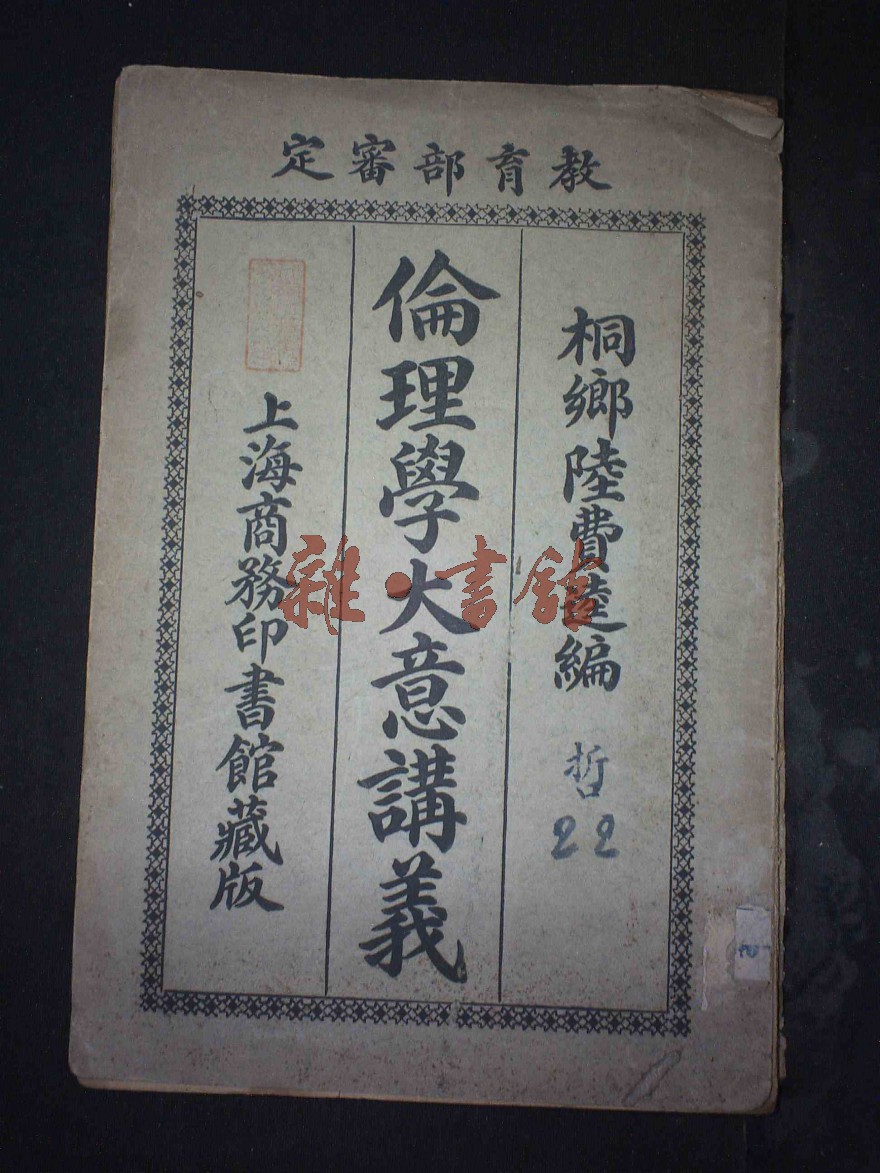 教育部審定
桐鄉陸費逵編
哲
22
倫理學大意講義
上海商務印書館藏版
雜·書館